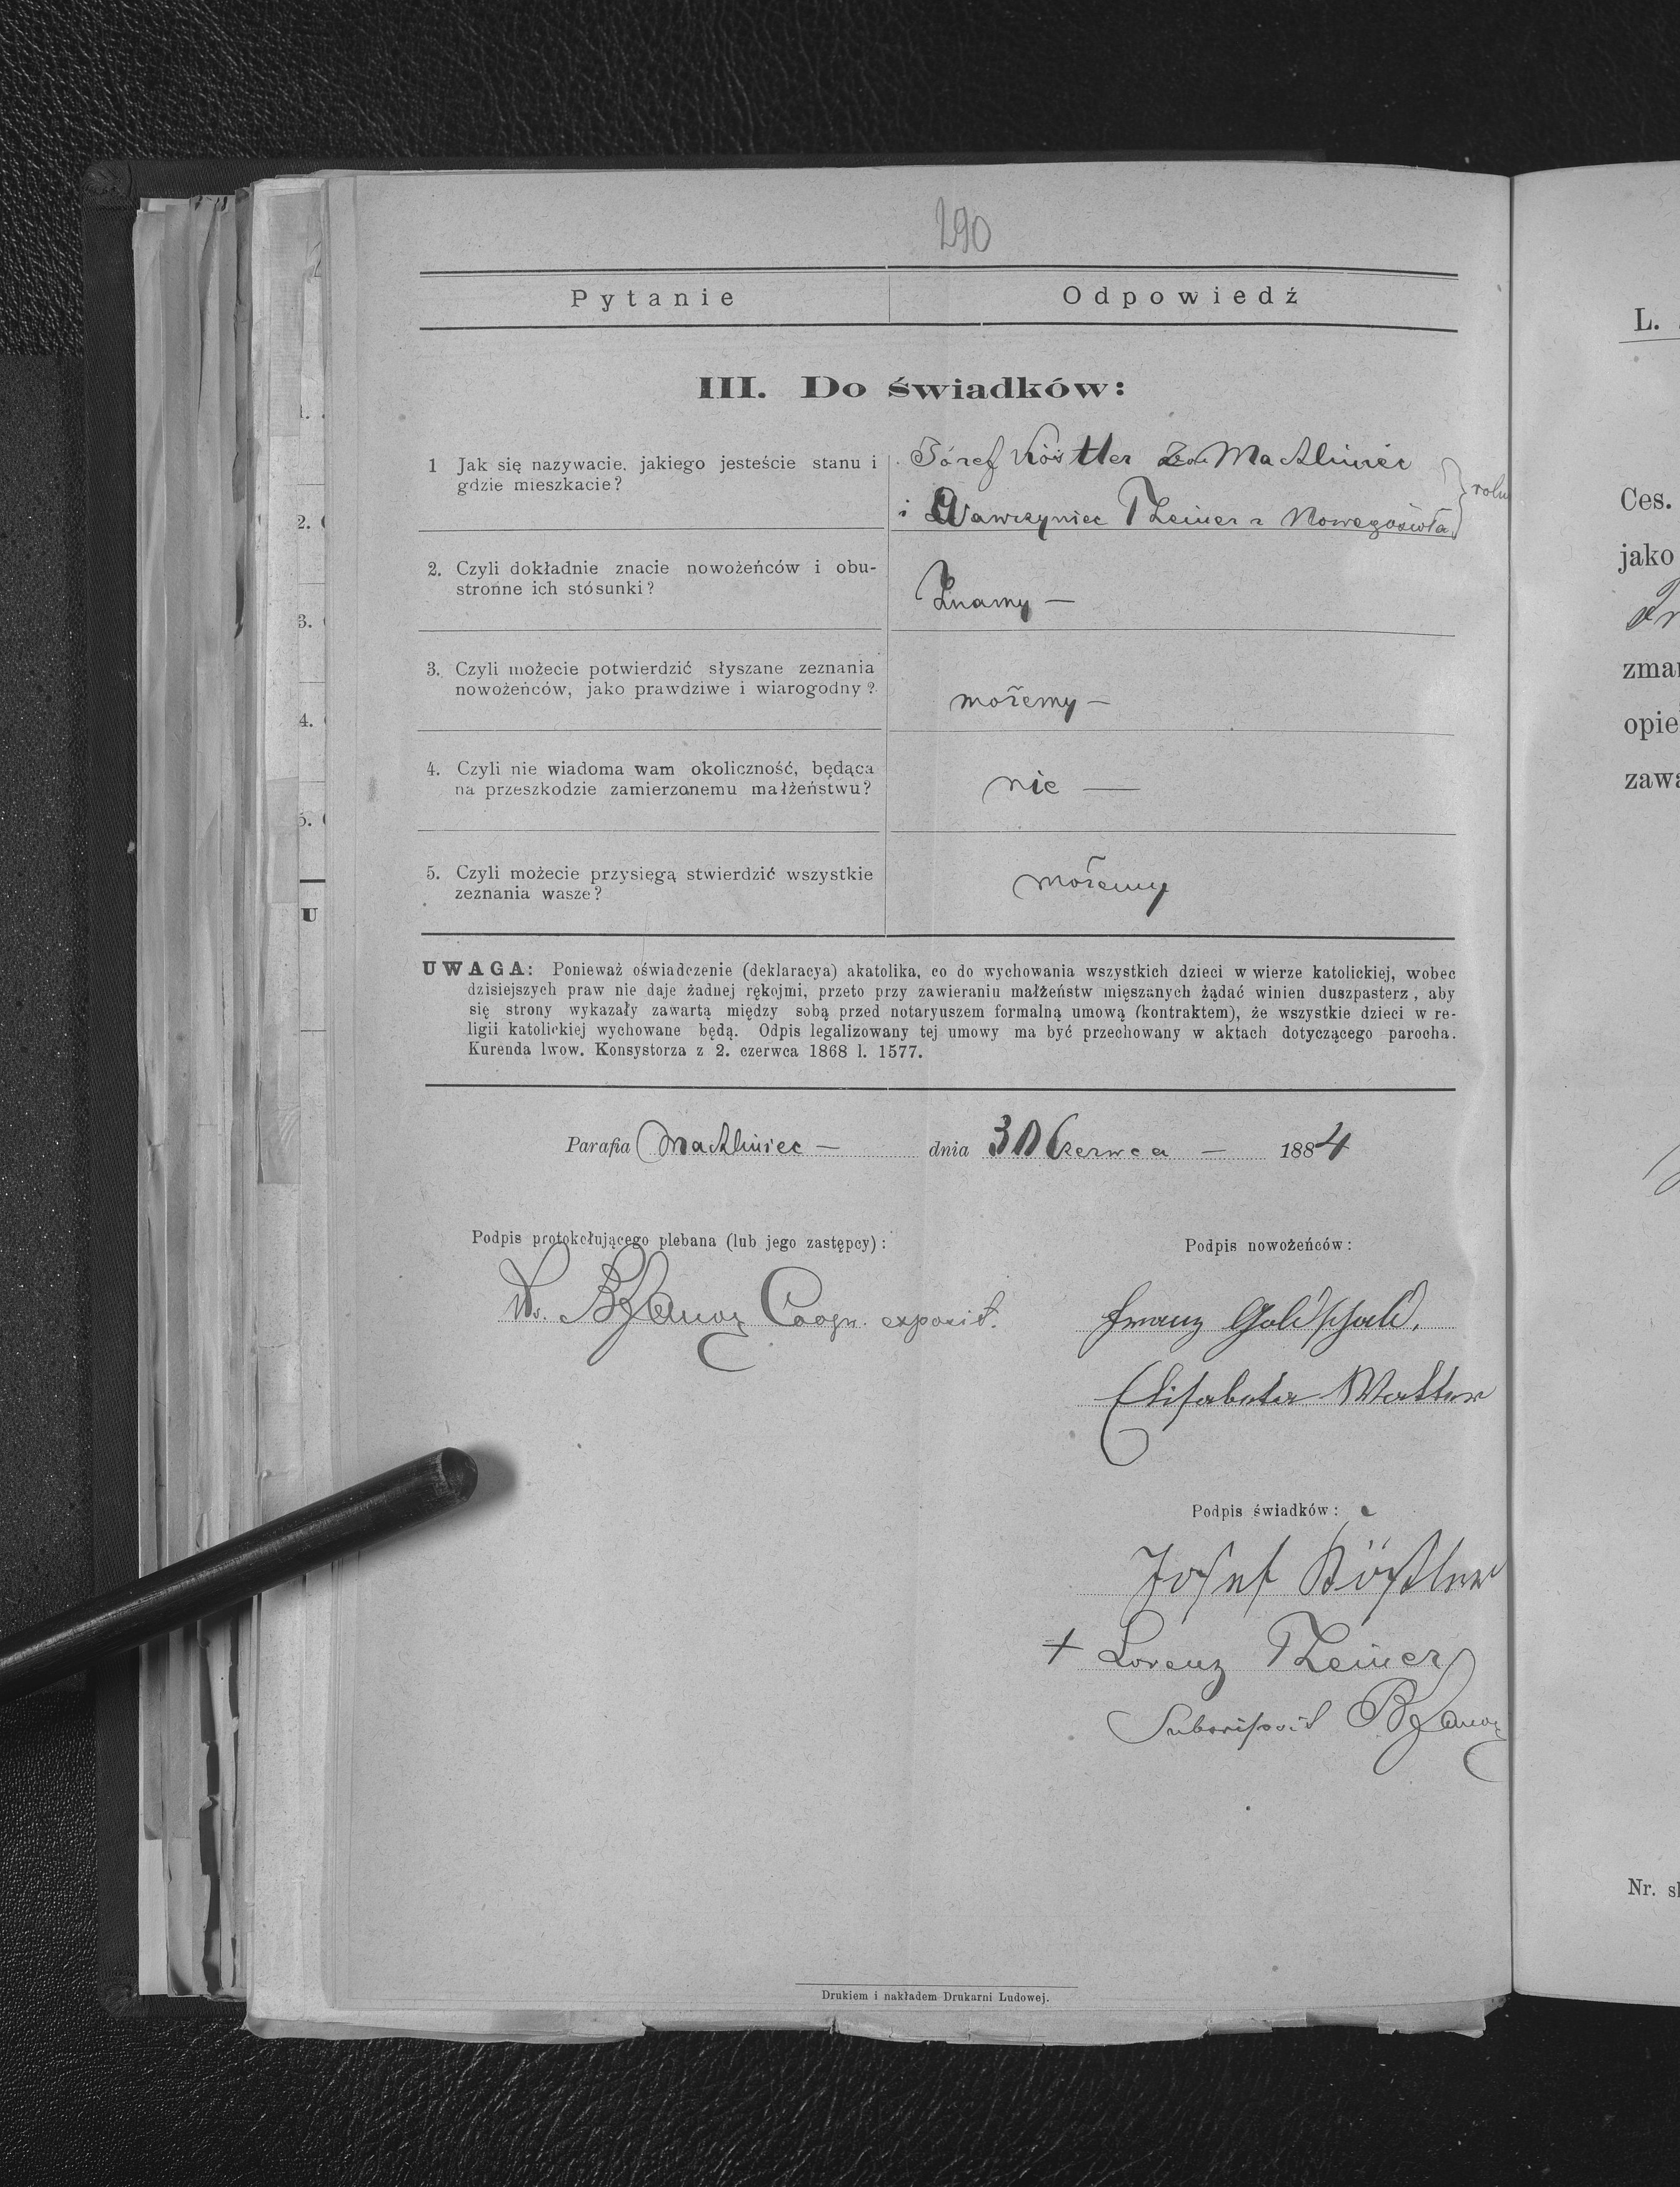 290
Pytanie
Odpowiedź
III. Do świadków:
1 Jak się nazywacie, jakiego jesteście stanu i
gdzie mieszkacie?
Józef Köstler z Machliniec
i Wawrzyniec Theiner z Nowegosioła
2. Czyli dokładnie znacie nowożeńców i obu-
stronne ich stósunki?
Znamy —
3. Czyli możecie potwierdzić słyszane zeznania
nowożeńców, jako prawdziwe i wiarogodny?
możemy —
4. Czyli nie wiadoma wam okoliczność, będąca
na przeszkodzie zamierzonemu małżeństwu?
nie —
5. Czyli możecie przysięgą stwierdzić wszystkie
zeznania wasze?
możemy
UWAGA: Ponieważ oświadczenie (deklaracya) akatolika, co do wychowania wszystkich dzieci w wierze katolickiej, wobec
dzisiejszych praw nie daje żadnej rękojmi, przeto przy zawieraniu małżeństw mięszanych żądać winien duszpasterz, aby
się strony wykazały zawartą między sobą przed notaryuszem formalną umową (kontraktem), że wszystkie dzieci w re-
ligii katolickiej wychowane będą. Odpis legalizowany tej umowy ma być przechowany w aktach dotyczącego parocha.
Kurenda lwow. Konsystorza z 2. czerwca 1868 l. 1577.
Parafia Machliniec — dnia 30 Czerwca — 1884
Podpis protokołującego plebana (lub jego zastępcy):
Podpis nowożeńców:
Franz Goldschald.
Elisabeta Walter
Podpis świadków:
Josef Köstler
+ Lorenz Theiner
Drukiem i nakładem Drukarni Ludowej.
L.
Ces.
jako
zmar
opie
zawa
Nr.
2.
3.
4.
5.
U